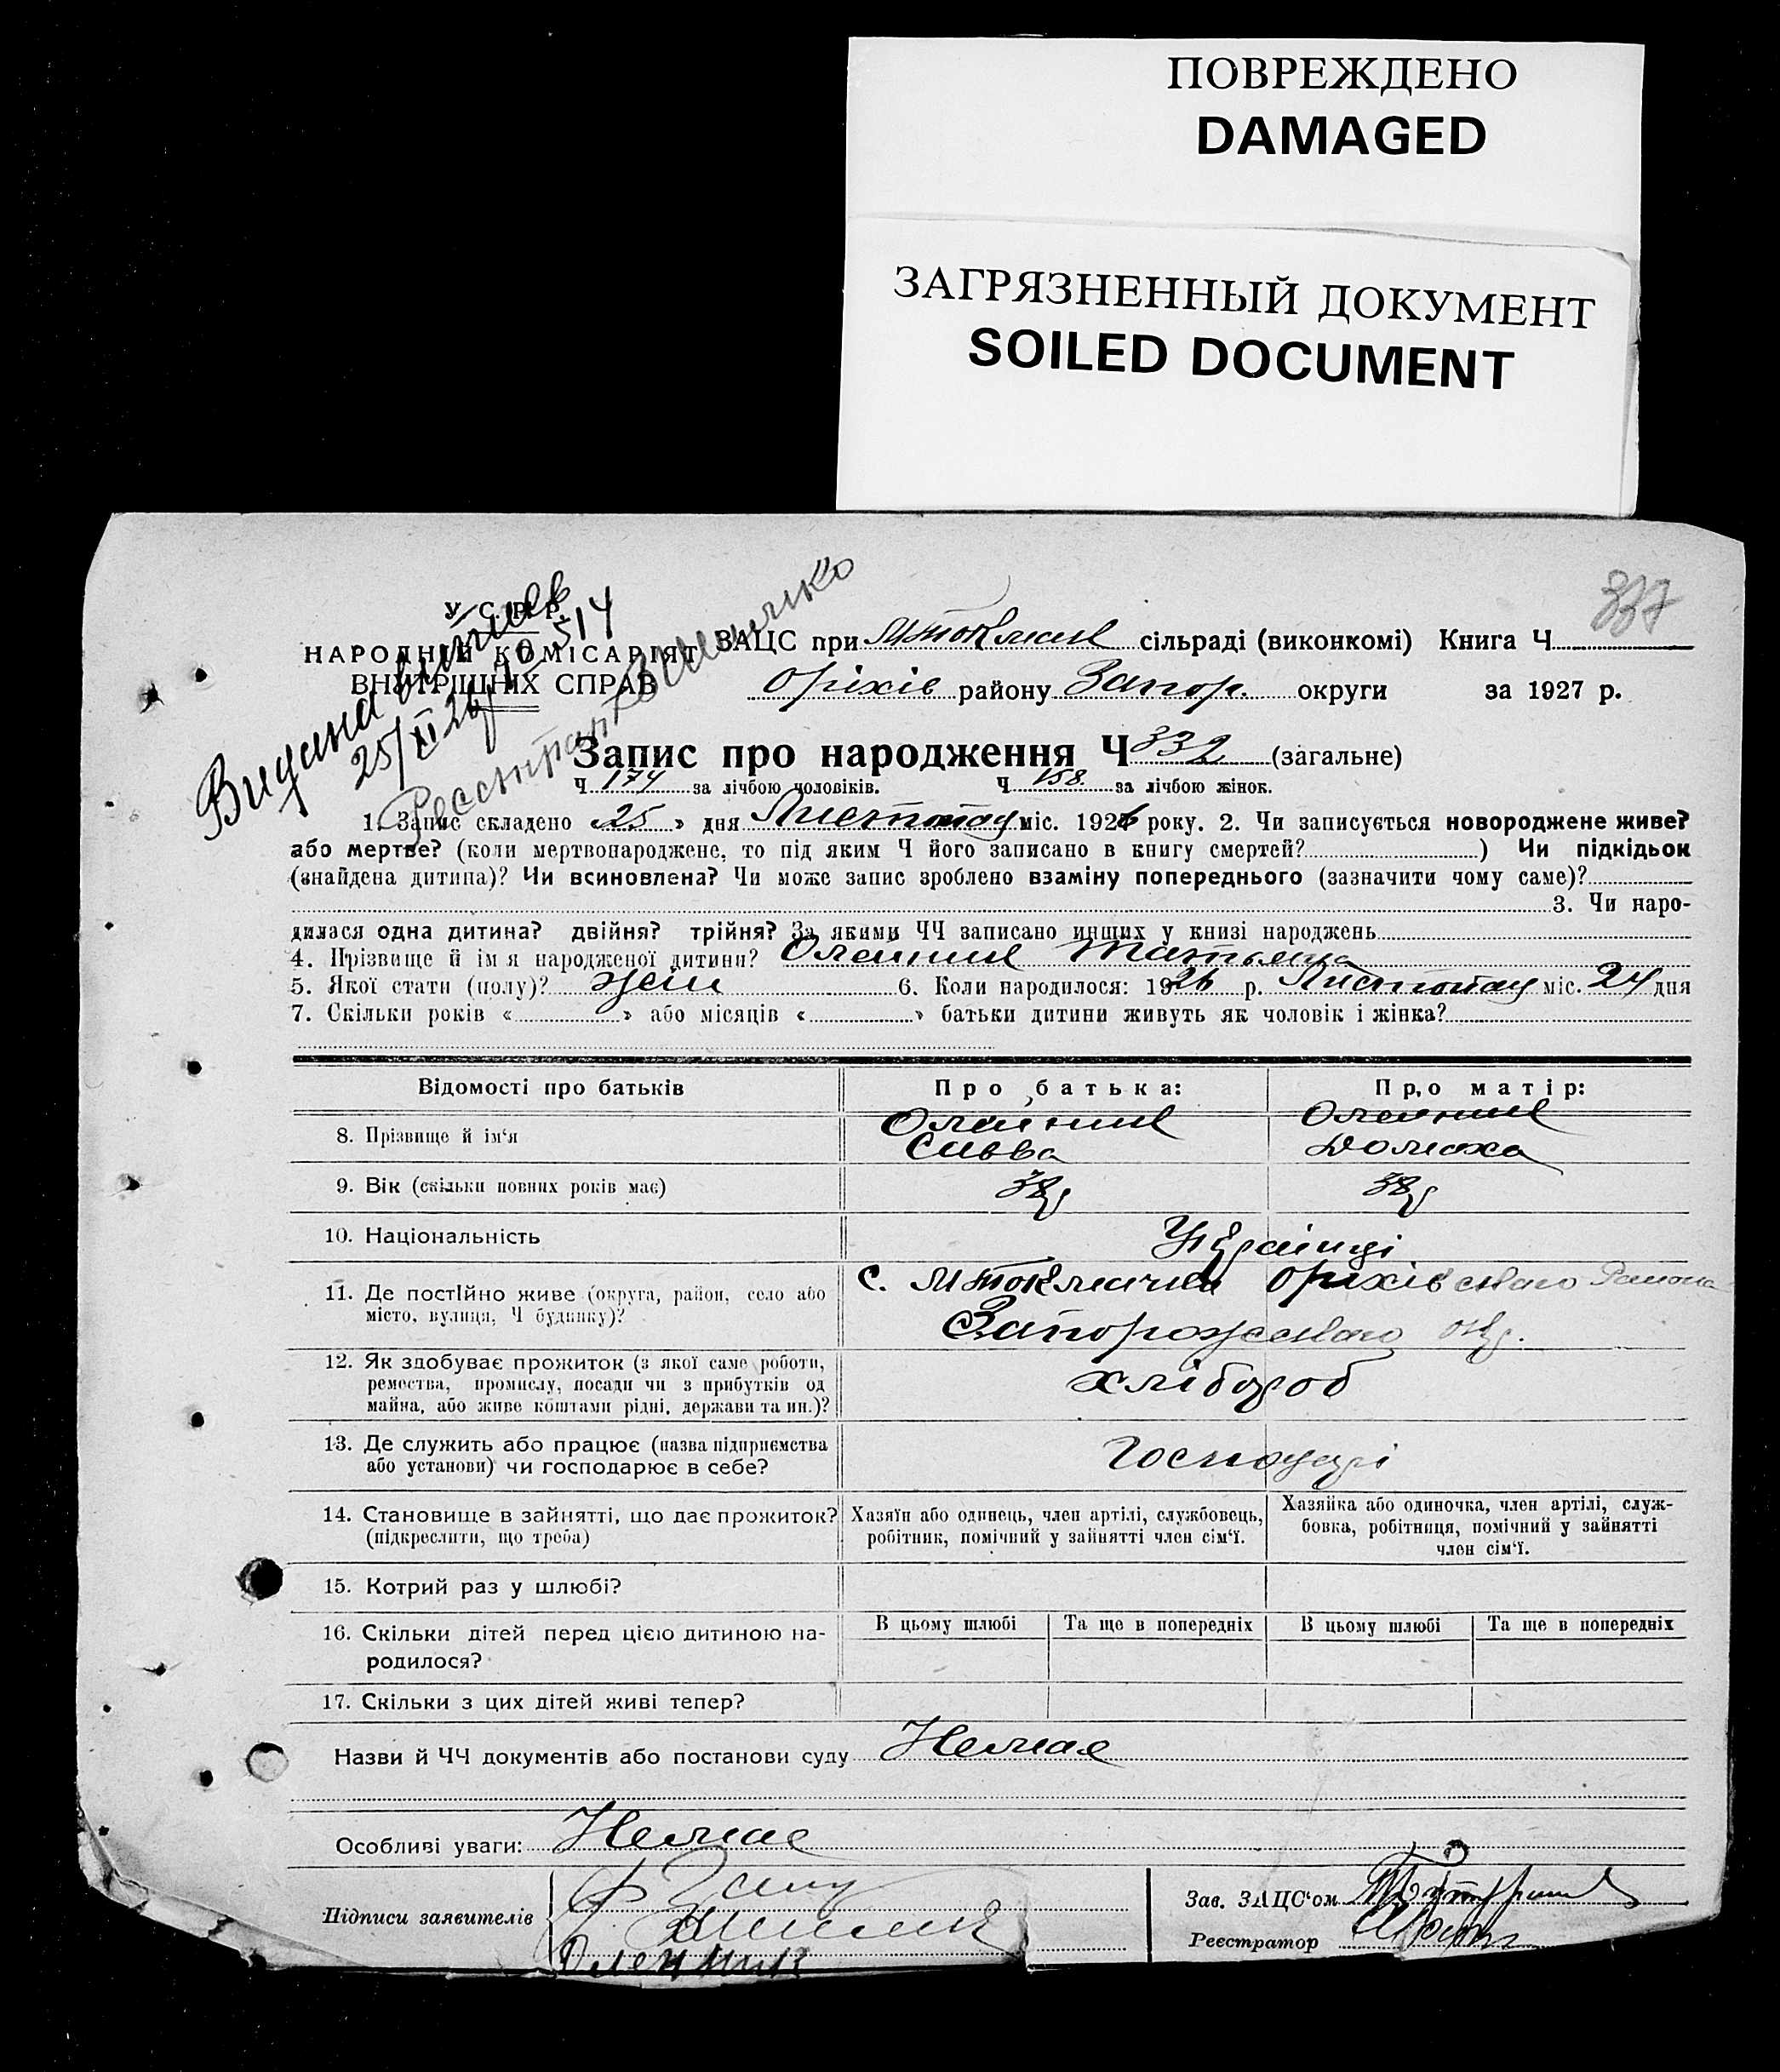 ПОВРЕЖДЕНО
DAMAGED
ЗАГРЯЗНЕННЫЙ ДОКУМЕНТ
SOILED DOCUMENT
337
У. С. Р. Р.
НАРОДНІЙ КОМІСАРІЯТ
ВНУТРІШНІХ СПРАВ
Видана витпісь
25/XI 26 р № 514
Реєстратор
ЗАЦС при М Токмац сільраді (виконкомі) Книга Ч.
Оріхів району Запор. округи за 1927 р.
Запис про народження Ч 332 (загальне)
Ч 174 за лічбою чоловіків. Ч 158 за лічбою жінок.
1. Запис складено « 25 » дня Листопад міс. 1926 року. 2. Чи записується новороджене живе?
або мертве? (коли мертвонароджене, то під яким Ч його записано в книгу смертей? ) Чи підкідьок
(знайдена дитина)? Чи всиновлена? Чи може запис зроблено взаміну попереднього (зазначити чому саме)?
3. Чи наро-
дилася одна дитина? двійня? трійня? За якими ЧЧ записано инших у книзі народжень
4. Прізвище й ім'я народженої дитини? Олейник Татьяна
5. Якої стати (полу)? жен 6. Коли народилося: 1926 р. Листопад міс. 24 дня
7. Скільки років « » або місяців « » батьки дитини живуть як чоловік і жінка?
Відомості про батьків
Про батька:
Про матір:
8. Прізвище й ім'я
Олейник
Савва
Олейник
Домаха
9. Вік (скільки повних років має)
38 р
38 р
10. Національність
Українці
11. Де постійно живе (округа, район, село або
місто, вулиця, Ч будинку)?
С. М Токмачка Оріхівского Района
Запорожского окр.
12. Як здобуває прожиток (з якої саме роботи,
ремества, промислу, посади чи з прибутків од
майна, або живе коштами рідні, держави та ин.)?
хлібороб
13. Де служить або працює (назва підприємства
або установи) чи господарює в себе?
Господарі
14. Становище в зайнятті, що дає прожиток?
(підкреслити, що треба)
Хазяїн або одинець, член артілі, службовець,
робітник, помічний у зайнятті член сім'ї.
Хазяйка або одиночка, член артілі, служ-
бовка, робітниця, помічний у зайнятті
член сім'ї.
15. Котрий раз у шлюбі?
16. Скільки дітей перед цією дитиною на-
родилося?
В цьому шлюбі
Та ще в попередніх
В цьому шлюбі
Та ще в попередніх
17. Скільки з цих дітей живі тепер?
Назви й ЧЧ документів або постанови суду Немає
Особливі уваги: Немає
Підписи заявителів
Олейник
Зав. ЗАЦС'ом
Реєстратор